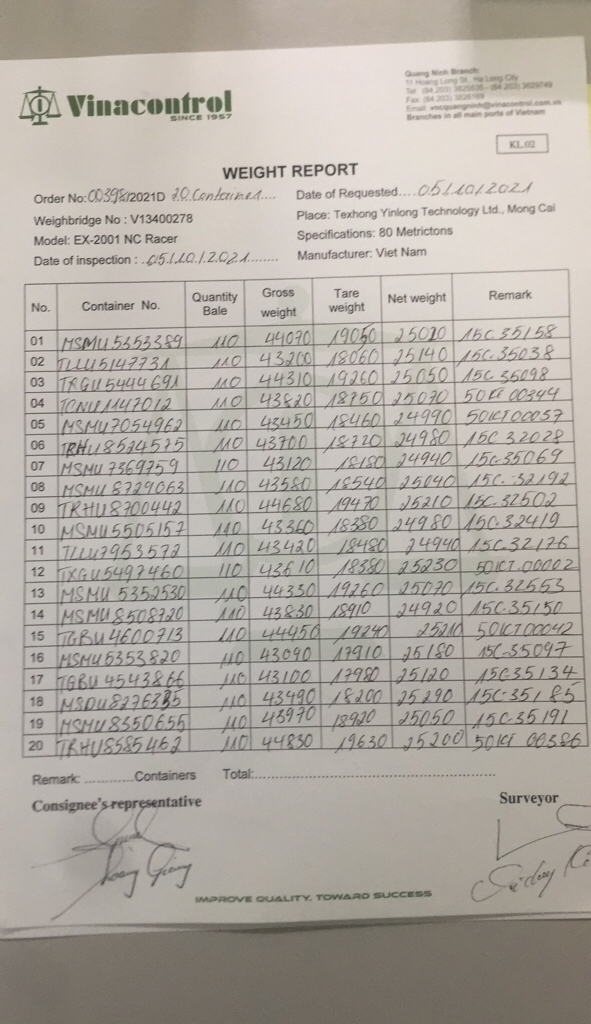 Vinacontrol
SINCE 1957
Quang Ninh Branch:
11 Hoang Long St., Ha Long City
Branches in all main ports of Vietnam
KL.02
WEIGHT REPORT
Order No: 00398/2021D 20 Container....
Date of Requested....05/10/2021
Weighbridge No : V13400278
Place: Texhong Yinlong Technology Ltd., Mong Cai
Model: EX-2001 NC Racer
Specifications: 80 Metrictons
Date of inspection : ..05/10/2021........
Manufacturer: Viet Nam
No. Container No. Quantity Bale Gross weight Tare weight Net weight Remark
01 MSMU5353389 110 44070 19050 25020 15C.35158
02 TLLU5147731 110 43200 18060 25140 15C.35038
03 TRGU5444691 110 44310 19260 25050 15C 35098
04 110 43820 18750 25070 50KT 00344
05 MSMU7054962 110 43450 18460 24990 50KT00057
06 TRHU8524575 110 43700 18720 24980 15C 32028
07 MSMU7369759 110 43120 18180 24940 15C.35069
08 MSMU8729063 110 43580 18540 25040 15C.32192
09 TRHU8700442 110 44680 19470 25210 15C.32502
10 MSMU5505157 110 43360 18380 24980 15C.32419
11 TLLU7953572 110 43420 18480 24940 15C.32176
12 TXGU5497460 110 43610 18380 25230 50KT.00002
13 MSMU 5352530 110 44330 19260 25070 15C.32553
14 MSMU8508720 110 43830 18910 24920 15C.35150
15 TGBU4600713 110 44450 19240 25210 50KT00042
16 MSMU5353820 110 43090 17910 25180 15C-35097
17 TGBU4543866 110 43100 17980 25120 15C35134
18 MSDU8276335 110 43490 18200 25290 15C.35185
19 MSMU8350655 110 43970 18920 25050 15C.35191
20 TRHU8585462 110 44830 19630 25200 50KT 00386
Remark: ............Containers Total:............................................................
Consignee's representative
Surveyor
IMPROVE QUALITY, TOWARD SUCCESS